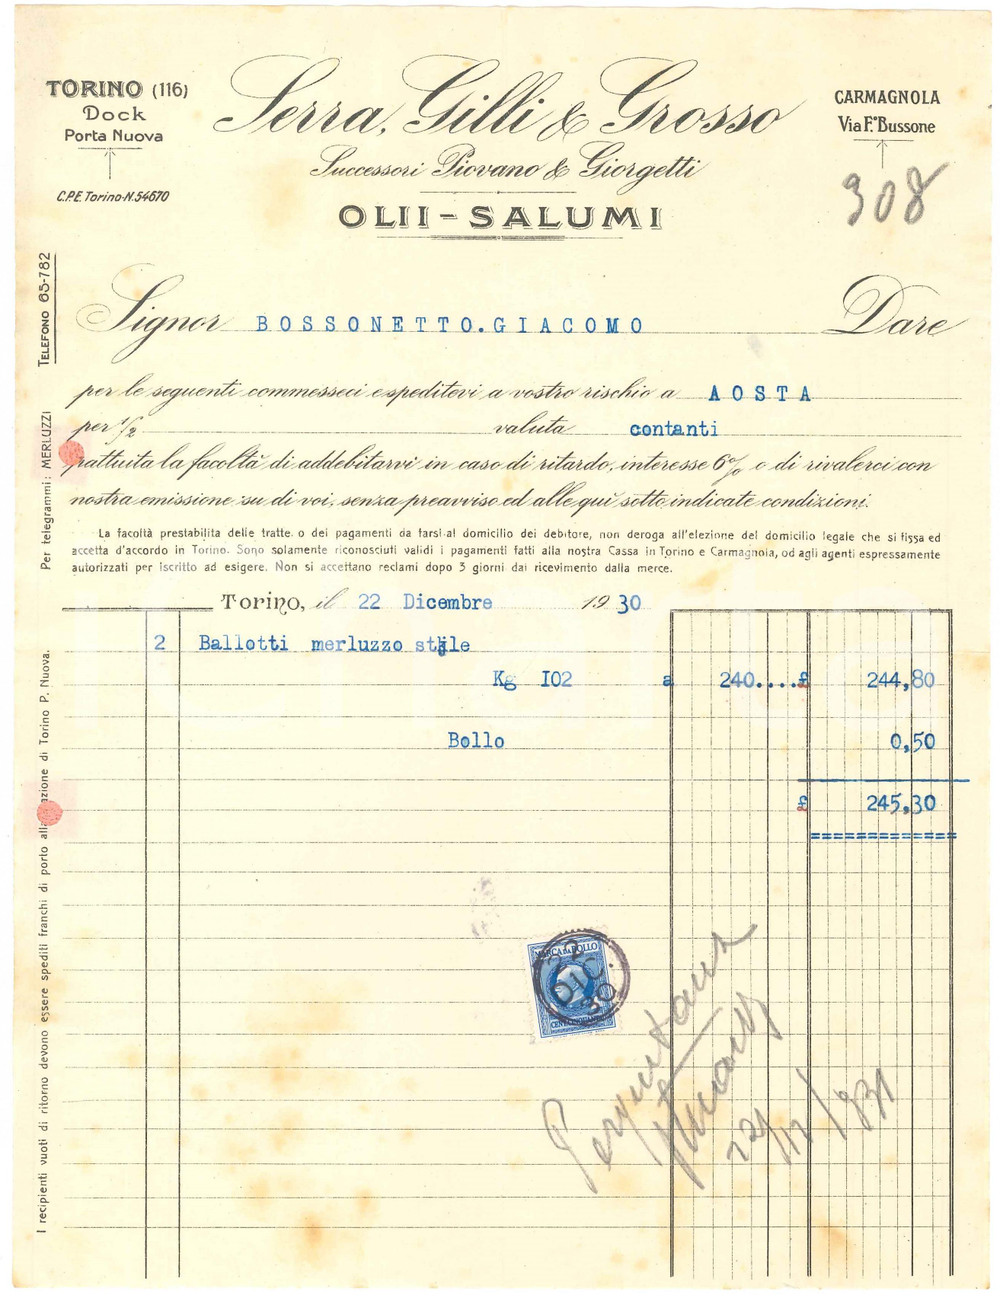 TORINO (116)
Dock
Porta Nuova
C.P.E. Torino-N. 54670
Serra, Gilli & Grosso
Successori Piovano & Giorgetti
OLII - SALUMI
CARMAGNOLA
Via F. Bussone
308
TELEFONO 65-782
Per telegrammi: MERLUZZI
Signor BOSSONETTO.GIACOMO Dare
per le seguenti commesseci e speditevi a vostro rischio a AOSTA
per 1/2 valuta contanti
pattuita la facoltà di addebitarvi in caso di ritardo, interesse 6% o di rivalerci con
nostra emissione su di voi, senza preavviso ed alle qui sotto indicate condizioni.
La facoltà prestabilita delle tratte o dei pagamenti da farsi al domicilio dei debitore, non deroga all'elezione del domicilio legale che si fissa ed
accetta d'accordo in Torino. Sono solamente riconosciuti validi i pagamenti fatti alla nostra Cassa in Torino e Carmagnola, od agli agenti espressamente
autorizzati per iscritto ad esigere. Non si accettano reclami dopo 3 giorni dal ricevimento dalla merce.
Torino, il 22 Dicembre 1930
2 Ballotti merluzzo stile
Kg 102 a 240....£ 244,80
Bollo 0,50
£ 245,30
I recipienti vuoti di ritorno devono essere spediti franchi di porto alla azione di Torino P. Nuova.
MARCA da BOLLO
22
DIC.
30
22/12/